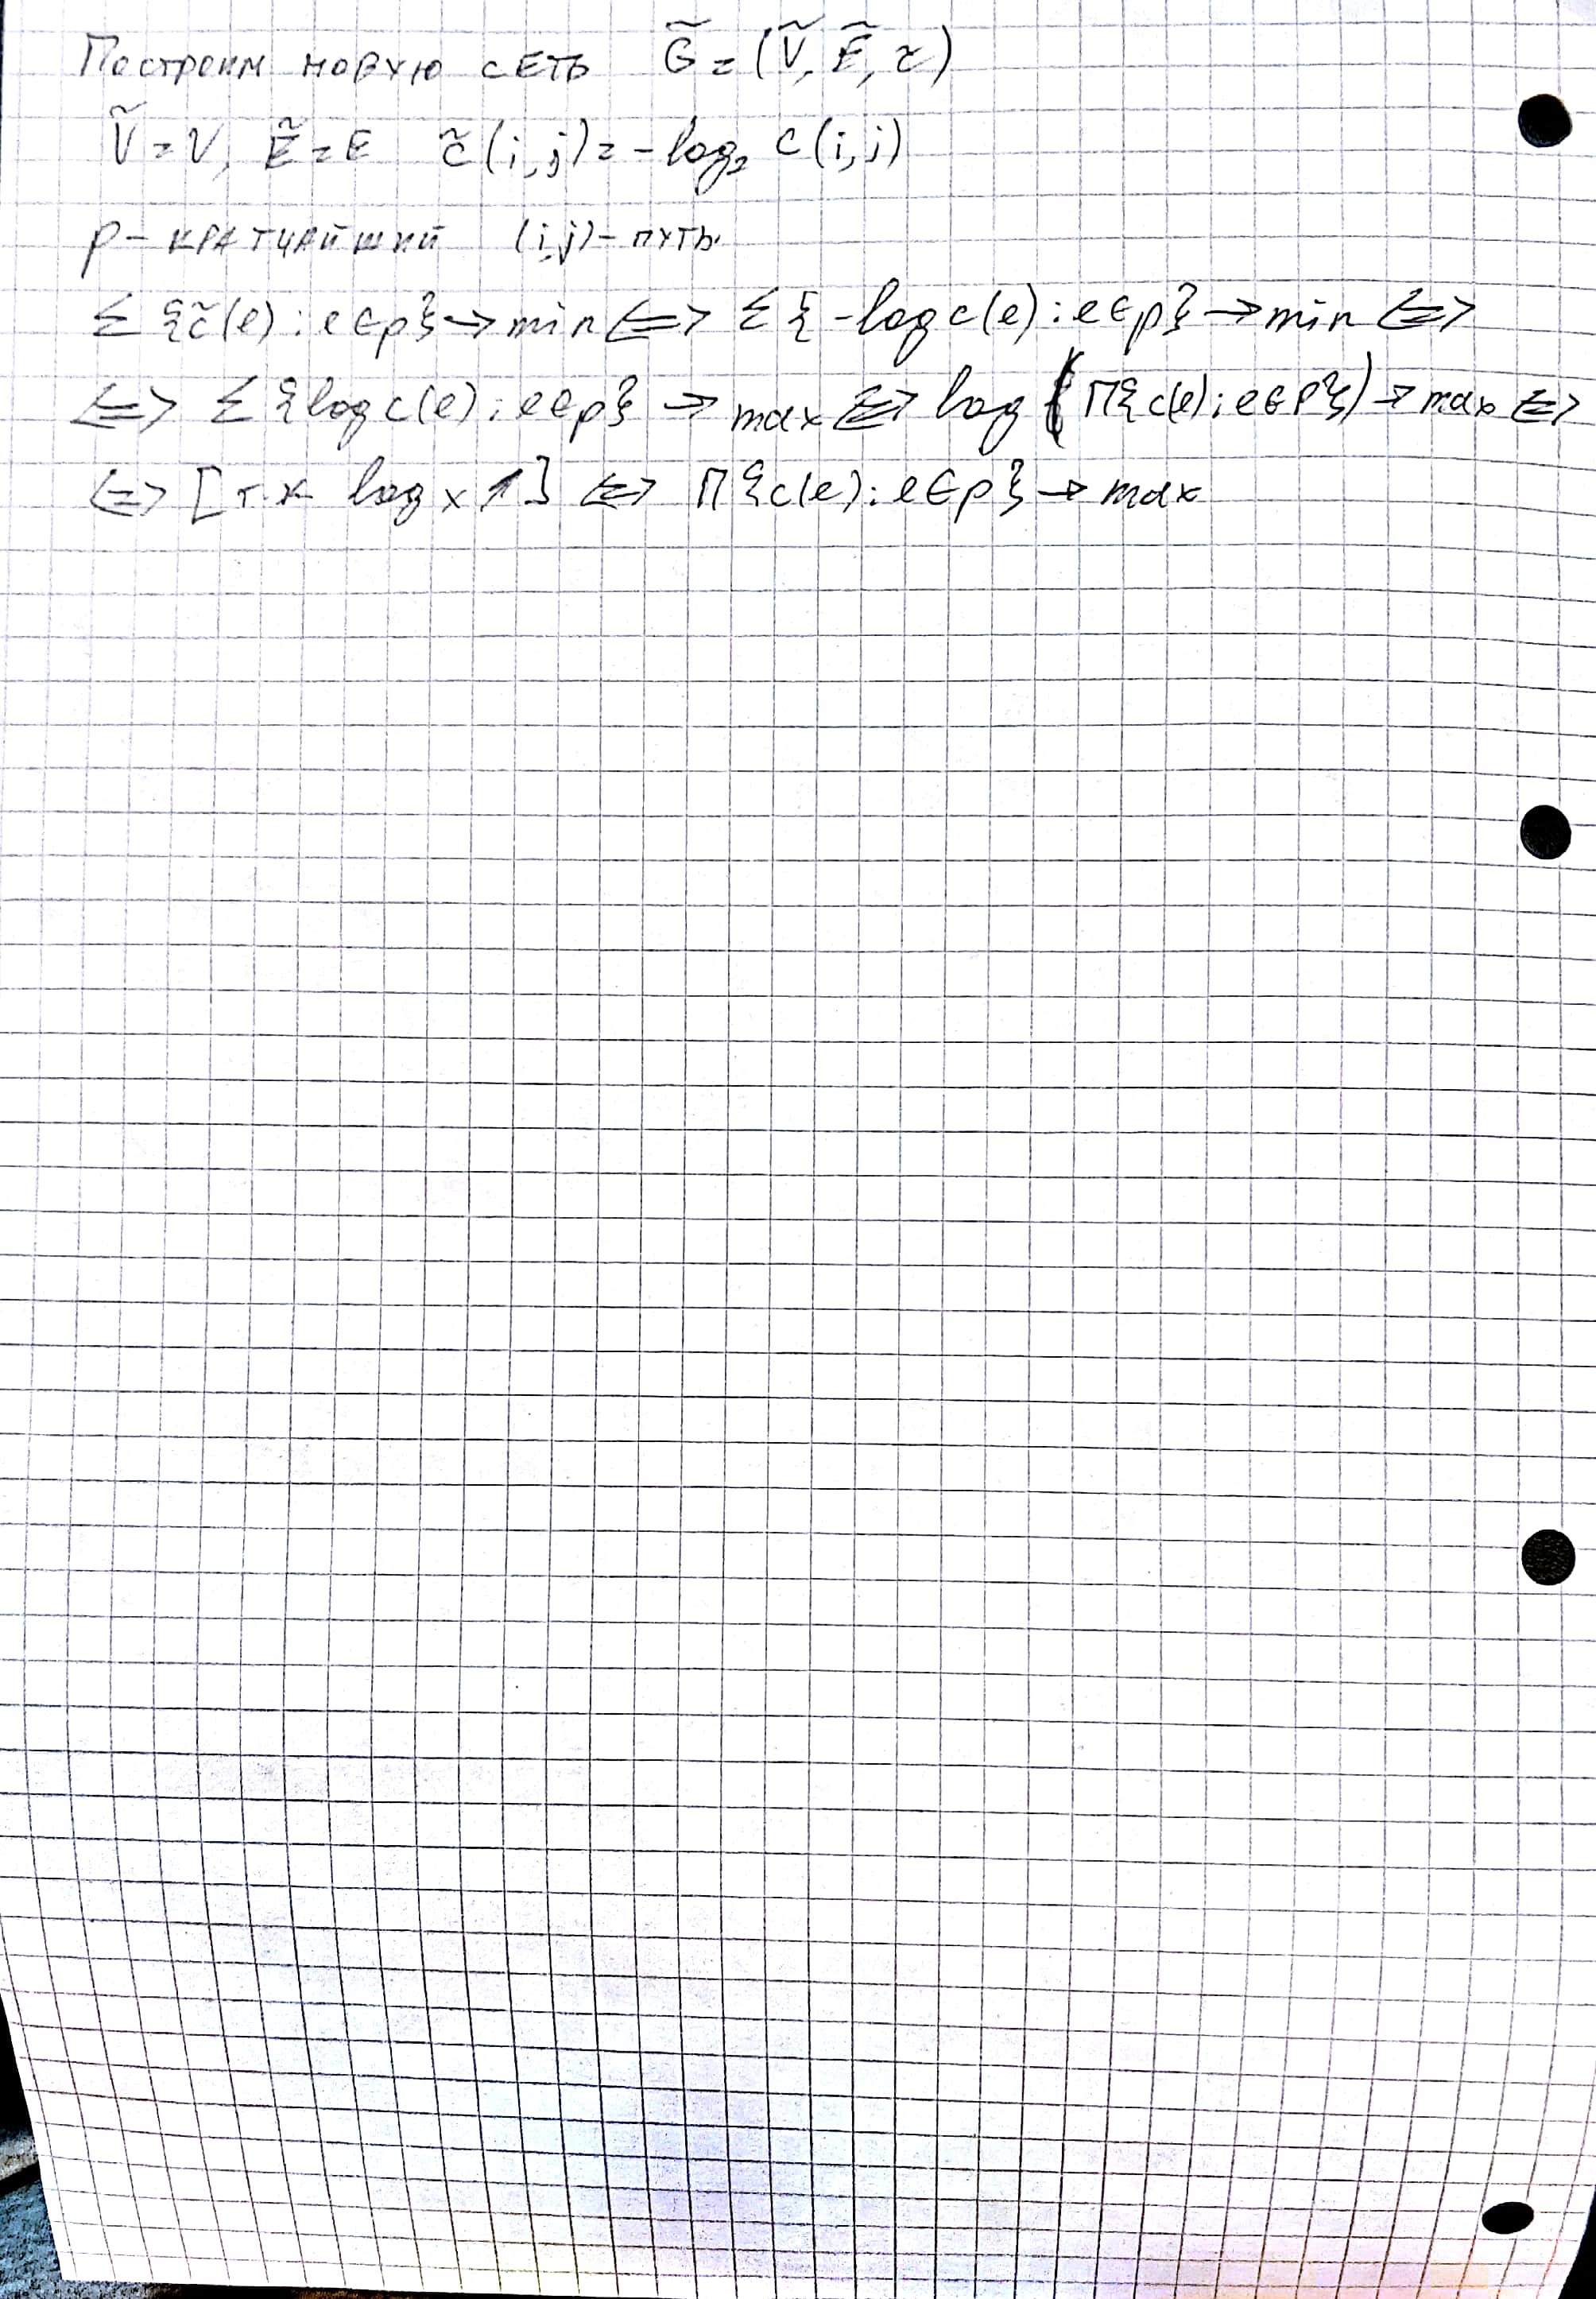 Построим новую сеть G̃ = (Ṽ, Ẽ, c̃)
Ṽ = V, Ẽ = E c̃(i,j) = -log₂ c(i,j)
p - кратчайший (i,j) - путь.
Σ{c̃(e) : e∈p} → min <=> Σ{-log c(e) : e∈p} → min <=>
<=> Σ{log c(e) : e∈p} → max <=> log (П{c(e) : e∈p}) → max <=>
<=> [т.к log x ↑] <=> П{c(e) : e∈p} → max